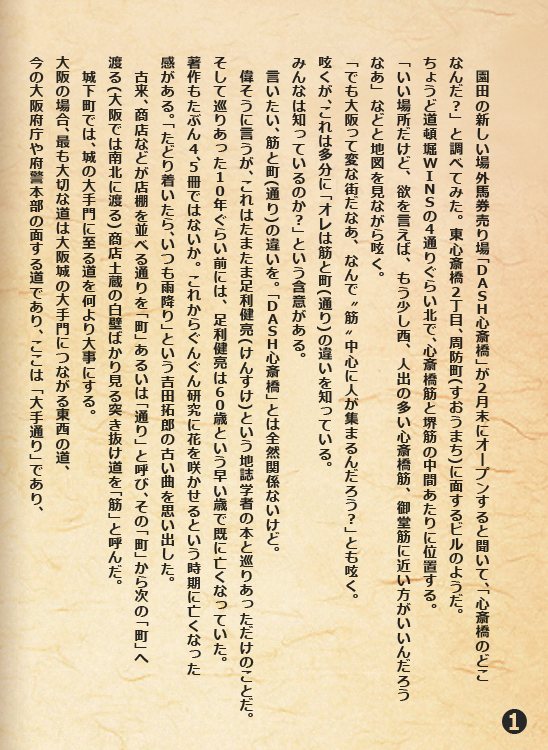 園田の新しい場外馬券売り場「DASH心斎橋」が２月末にオープンすると聞いて、「心斎橋のどこ
なんだ？」と調べてみた。東心斎橋２丁目、周防町(すおうまち)に面するビルのようだ。
ちょうど道頓堀WINSの４通りぐらい北で、心斎橋筋と堺筋の中間あたりに位置する。
「いい場所だけど、欲を言えば、もう少し西、人出の多い心斎橋筋、御堂筋に近い方がいいんだろう
なあ」などと地図を見ながら呟く。
「でも大阪って変な街だなあ、なんで〝筋〟中心に人が集まるんだろう？」とも呟く。
呟くが、これは多分に「オレは筋と町(通り)の違いを知っている。
みんなは知っているのか？」という含意がある。
言いたい、筋と町(通り)の違いを。「DASH心斎橋」とは全然関係ないけど。
偉そうに言うが、これはたまたま足利健亮(けんすけ)という地誌学者の本と巡りあっただけのことだ。
そして巡りあった１０年ぐらい前には、足利健亮は６０歳という早い歳で既に亡くなっていた。
著作もたぶん４、５冊ではないか。これからぐんぐん研究に花を咲かせるという時期に亡くなった
感がある。「たどり着いたら、いつも雨降り」という吉田拓郎の古い曲を思い出した。
古来、商店などが店棚を並べる通りを「町」あるいは「通り」と呼び、その「町」から次の「町」へ
渡る(大阪では南北に渡る)商店土蔵の白壁ばかり見る突き抜け道を「筋」と呼んだ。
城下町では、城の大手門に至る道を何より大事にする。
大阪の場合、最も大切な道は大阪城の大手門につながる東西の道、
今の大阪府庁や府警本部の面する道であり、ここは「大手通り」であり、
1